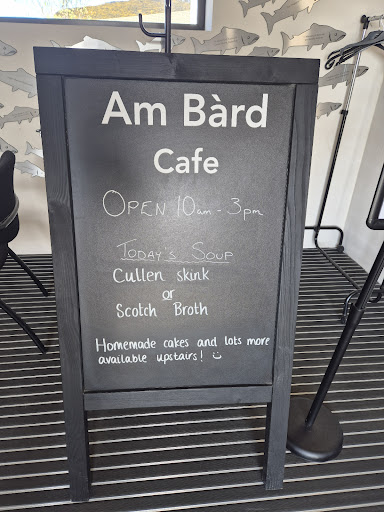 Am Bàrd
Cafe
OPEN 10am - 3pm
TODAY'S SOUP
Cullen skink
or
Scotch Broth
Homemade cakes and lots more
available upstairs! ☺